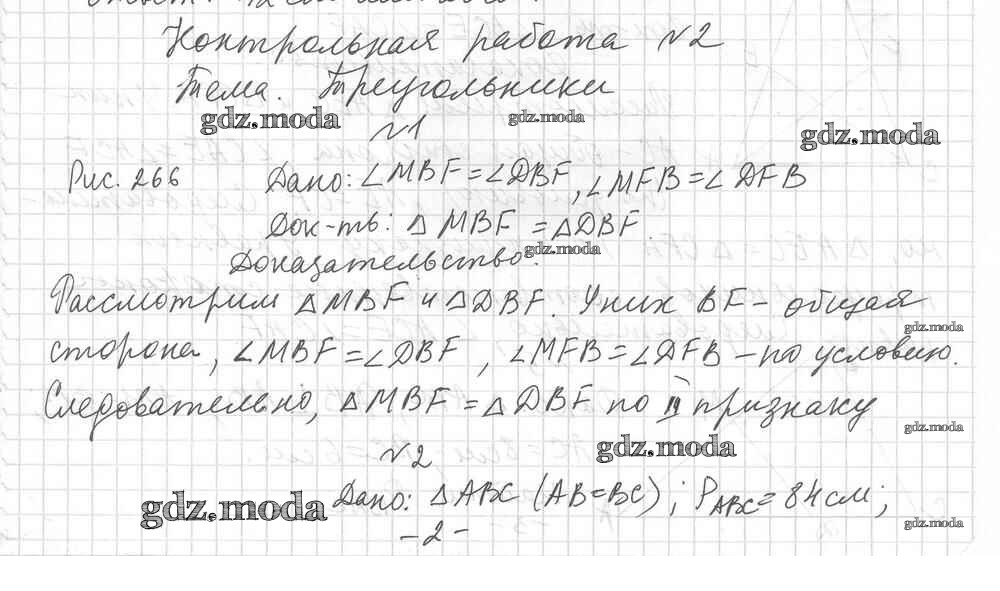 Контрольная работа №2
Тема. Треугольники
gdz.moda
gdz.moda
№1
gdz.moda
Рис. 266 Дано: ∠MBF=∠DBF, ∠MFB=∠DFB
Док-ть: △MBF =△DBF
gdz.moda
Доказательство:
Рассмотрим △MBF и △DBF. У них BF - общая
gdz.moda
сторона, ∠MBF=∠DBF, ∠MFB=∠DFB - по условию.
Следовательно, △MBF=△DBF по II признаку
gdz.moda
№2
gdz.moda
gdz.moda
Дано: △ABC (AB=BC); PABC=84см;
gdz.moda
-2-